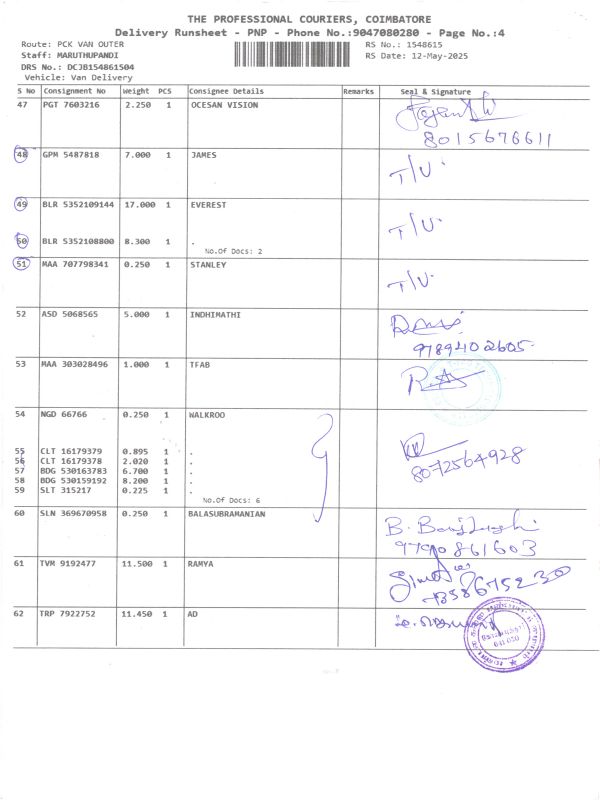 THE PROFESSIONAL COURIERS, COIMBATORE
Delivery Runsheet - PNP - Phone No.:9047080280 - Page No.:4
Route: PCK VAN OUTER RS No.: 1548615
Staff: MARUTHUPANDI RS Date: 12-May-2025
DRS No.: DCJB154861504
Vehicle: Van Delivery
S No Consignment No Weight PCS Consignee Details Remarks Seal & Signature
47 PGT 7603216 2.250 1 OCESAN VISION
8015676611
48 GPM 5487818 7.000 1 JAMES T/U
49 BLR 5352109144 17.000 1 EVEREST T/U
50 BLR 5352108800 8.300 1 .
No.Of Docs: 2
51 MAA 707798341 0.250 1 STANLEY T/U
52 ASD 5068565 5.000 1 INDHIMATHI
9789402605
53 MAA 303028496 1.000 1 TFAB
54 NGD 66766 0.250 1 WALKROO
55 CLT 16179379 0.895 1 .
56 CLT 16179378 2.020 1 .
57 BDG 530163783 6.700 1 . 8072564928
58 BDG 530159192 8.200 1 .
59 SLT 315217 0.225 1 .
No.Of Docs: 6
60 SLN 369670958 0.250 1 BALASUBRAMANIAN
61 TVM 9192477 11.500 1 RAMYA
62 TRP 7922752 11.450 1 AD